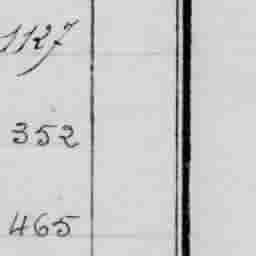 1127
352
465